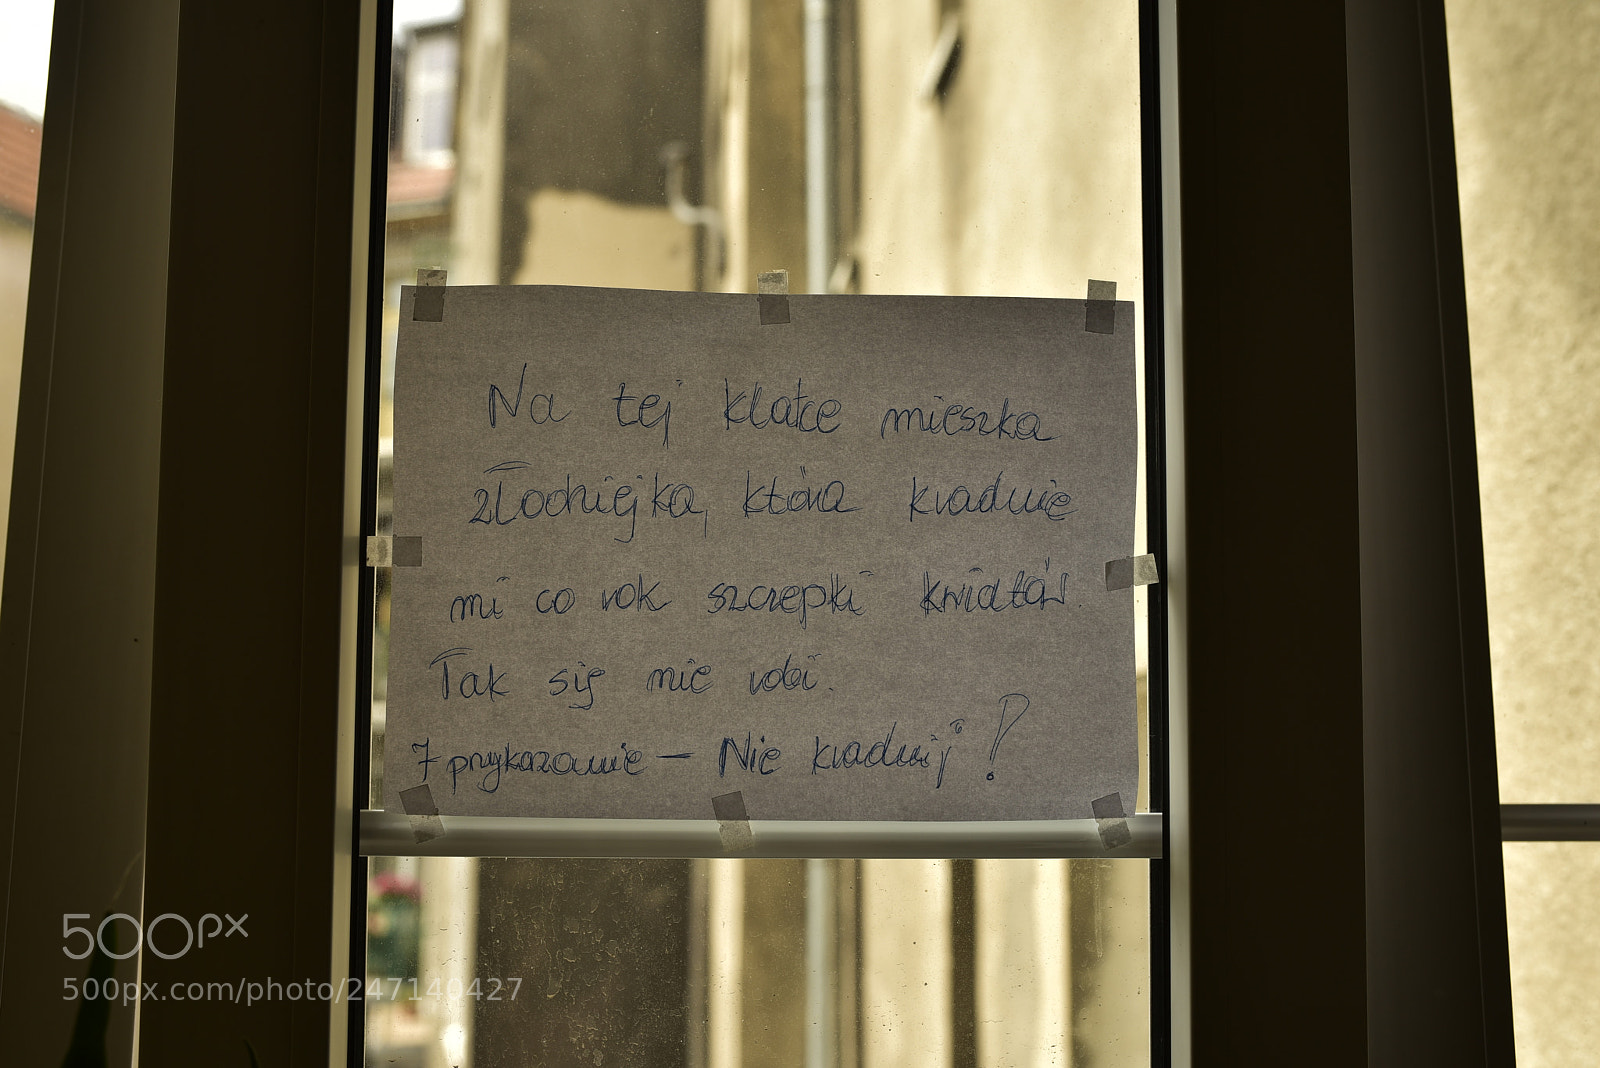 Na tej klatce mieszka
złodziejka, która kradnie
mi co rok szczepki kwiatów.
Tak się nie robi.
7 przykazanie – Nie kradnij!
500px
500px.com/photo/247140427